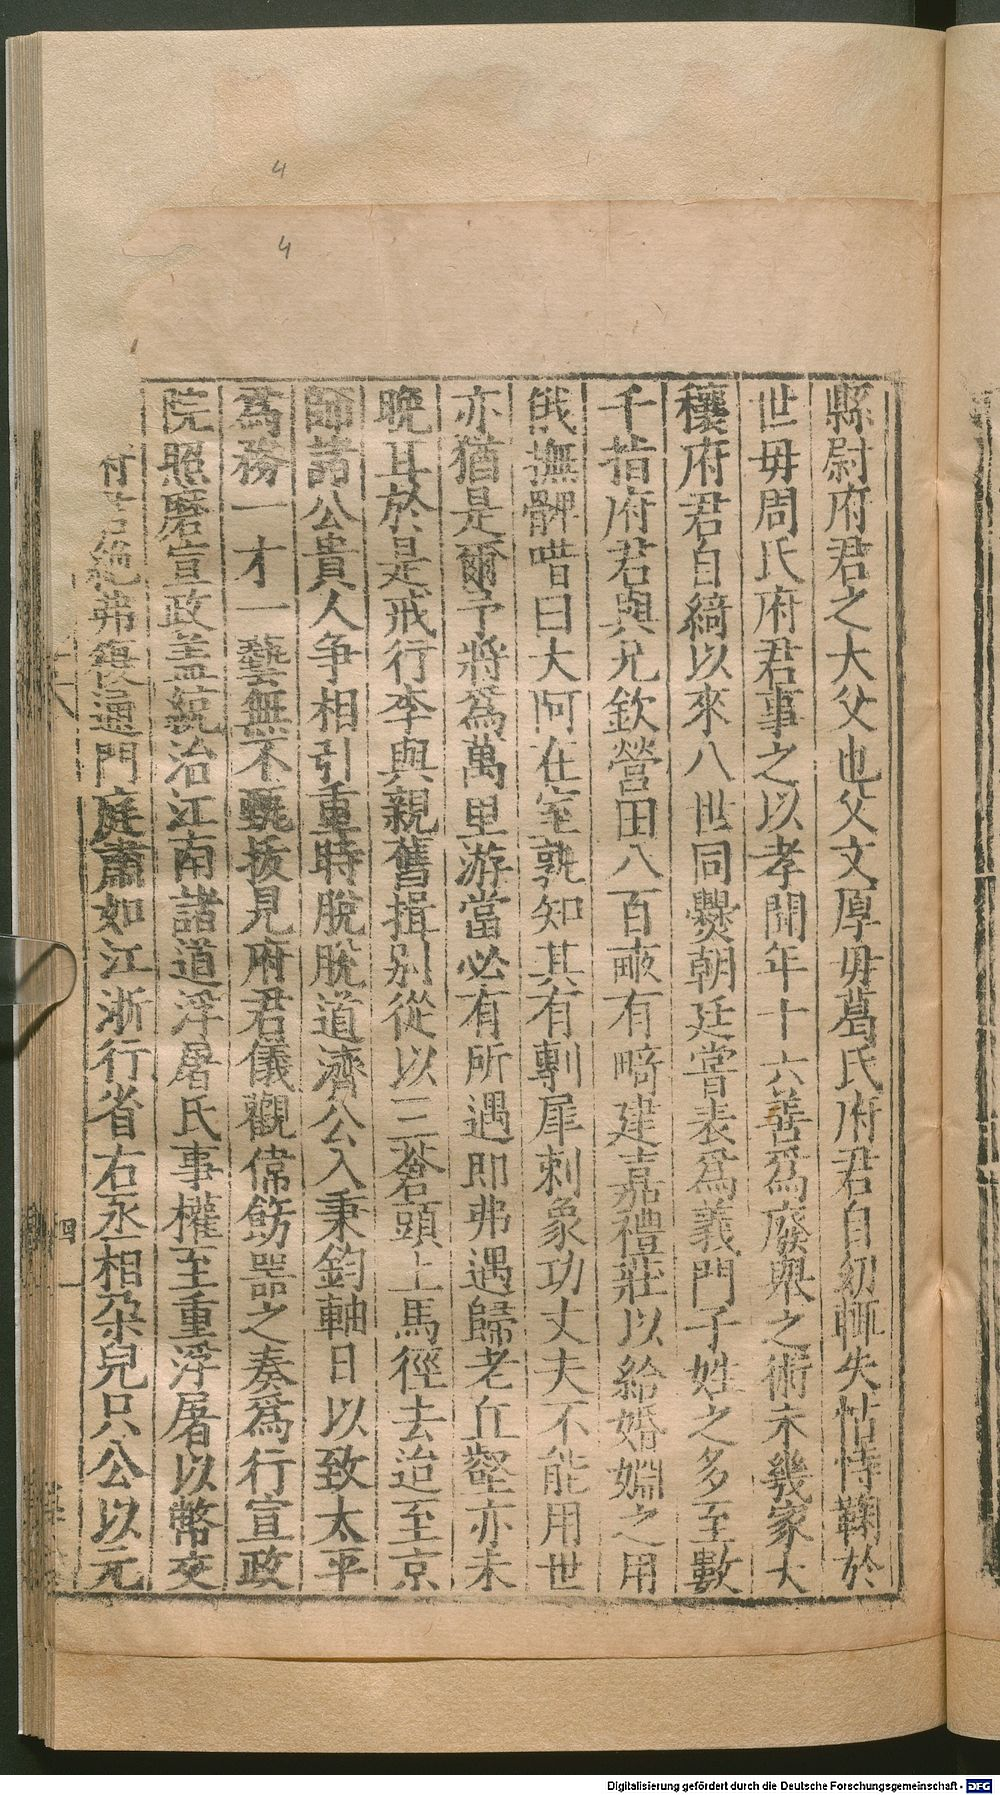 縣尉府君之大父也父文厚毋葛氏府君自幼輒失怙恃鞠於
世毋周氏府君事之以孝聞年十六善爲廢舉之術未幾家大
穰府君自綺以來八世同爨朝廷嘗表爲義門子姓之多至數
千指府君與兄欽營田八百畞有畸建嘉禮莊以給婚婣之用
俄撫髀喈曰大阿在室孰知其有剸犀刺象功丈夫不能用世
亦猶是爾予將爲萬里游當必有所遇即弗遇歸老丘壑亦未
晩耳於是戒行李與親舊揖別從以三蒼頭上馬徑去迨至京
師諸公貴人争相引重時脫脫道濟公入秉鈞軸日以致太平
爲務一才一藝無不甄拔見府君儀觀偉飭噐之奏爲行宣政
院照磨宣政盖統治江南諸道浮屠氏事權至重浮屠以幣交
府君絶弗復通門庭肅如江浙行省右丞相朶兒只公以元
四
4
4
Digitalisierung gefördert durch die Deutsche Forschungsgemeinschaft - DFG